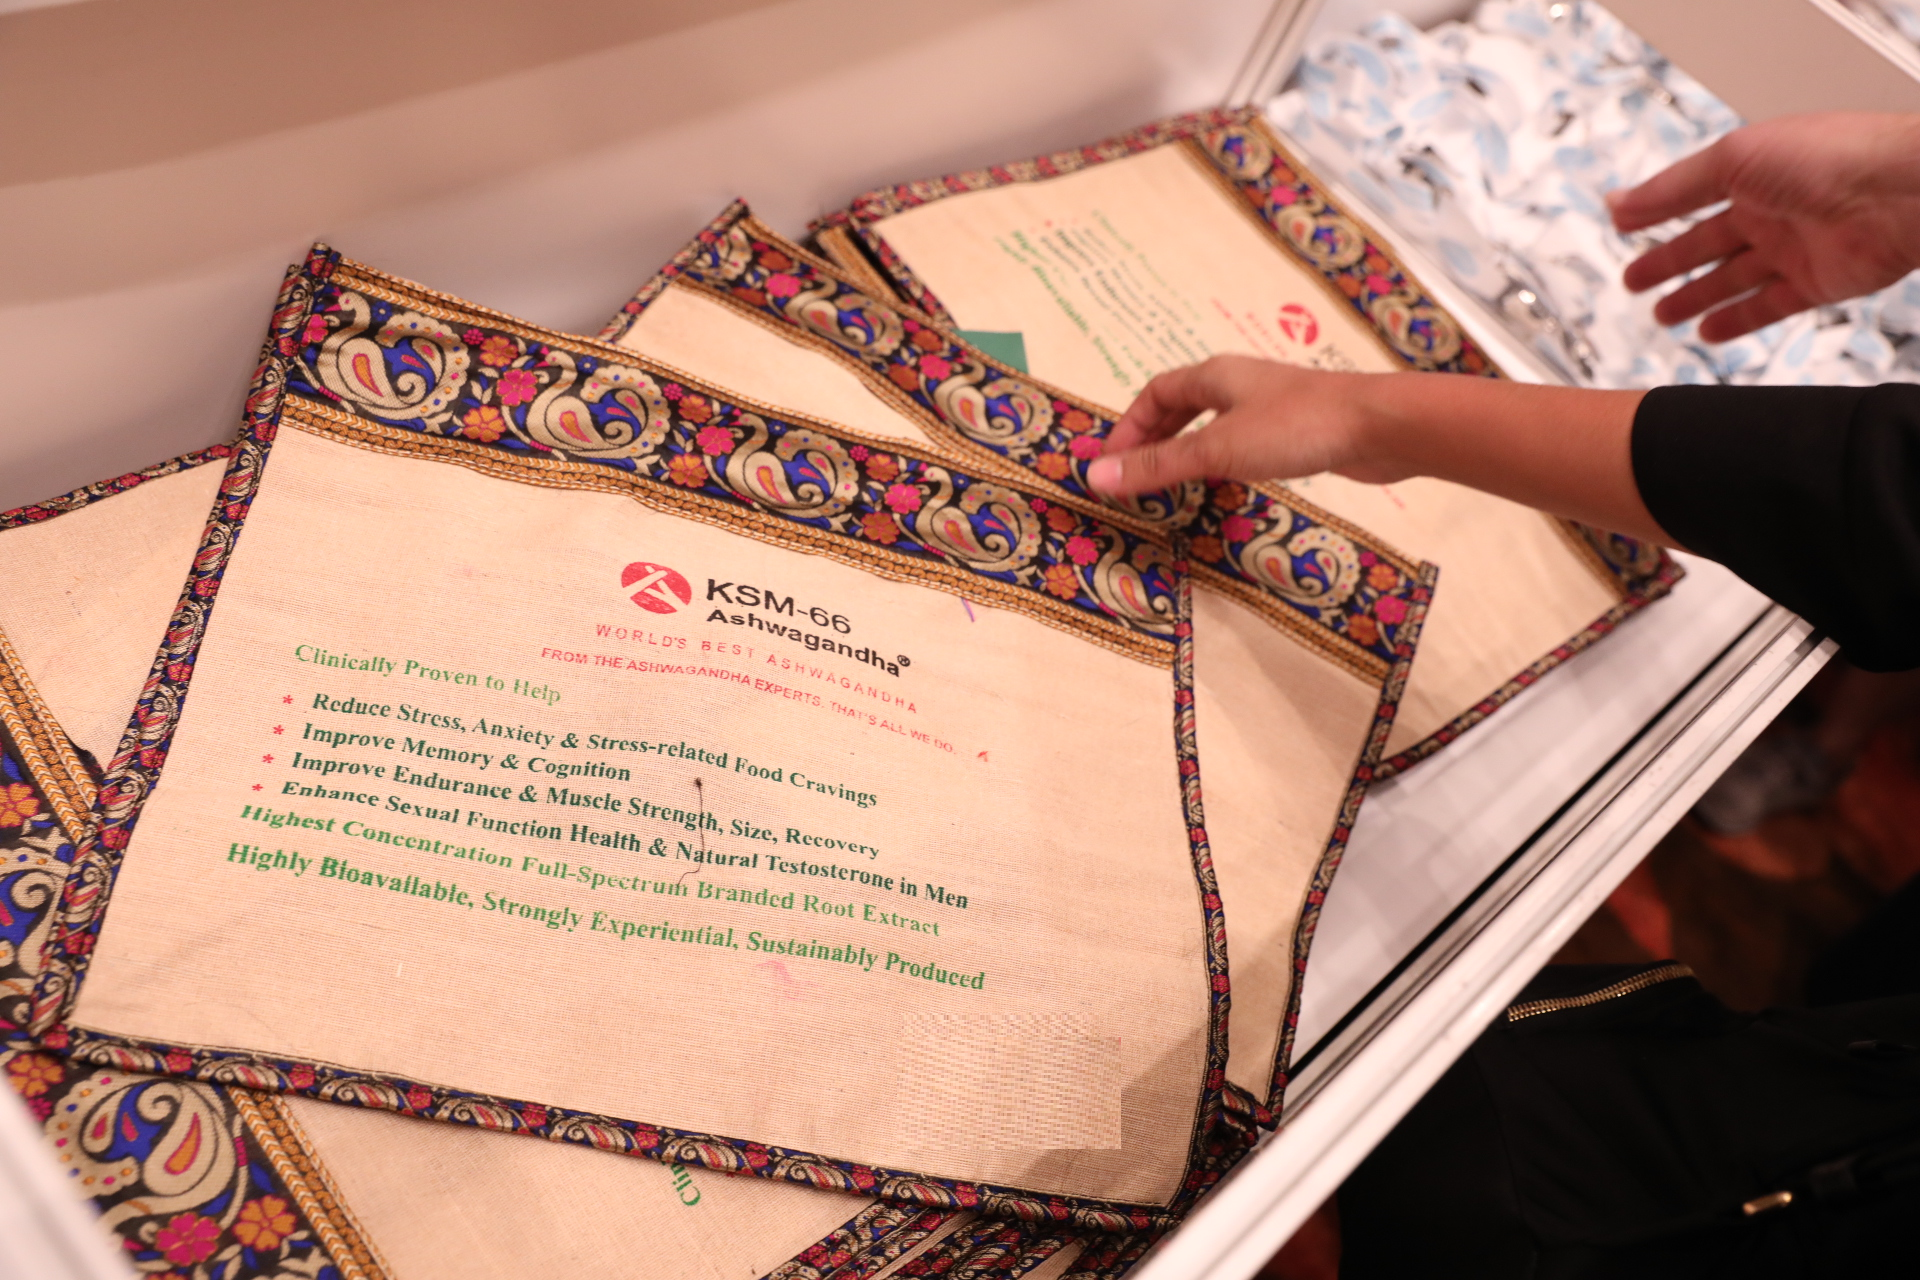 KSM-66
Ashwagandha®
WORLD'S BEST ASHWAGANDHA
FROM THE ASHWAGANDHA EXPERTS. THAT'S ALL WE DO.
Clinically Proven to Help
* Reduce Stress, Anxiety & Stress-related Food Cravings
* Improve Memory & Cognition
* Improve Endurance & Muscle Strength, Size, Recovery
* Enhance Sexual Function Health & Natural Testosterone in Men
Highest Concentration Full-Spectrum Branded Root Extract
Highly Bioavailable, Strongly Experiential, Sustainably Produced